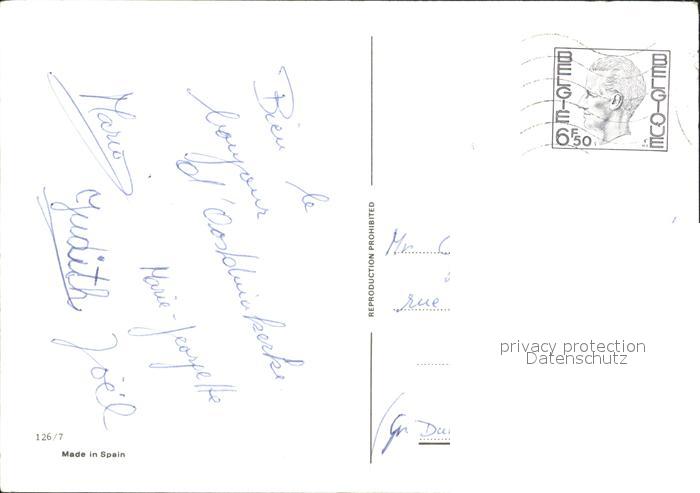 Bien le
bonjour
d'Oostduinkerke
Marie-Georgette
Mario
Judith
Joël
126/7
Made in Spain
REPRODUCTION PROHIBITED
BELGIE
BELGIQUE
6F50
Mr
rue
Gr Du
privacy protection
Datenschutz